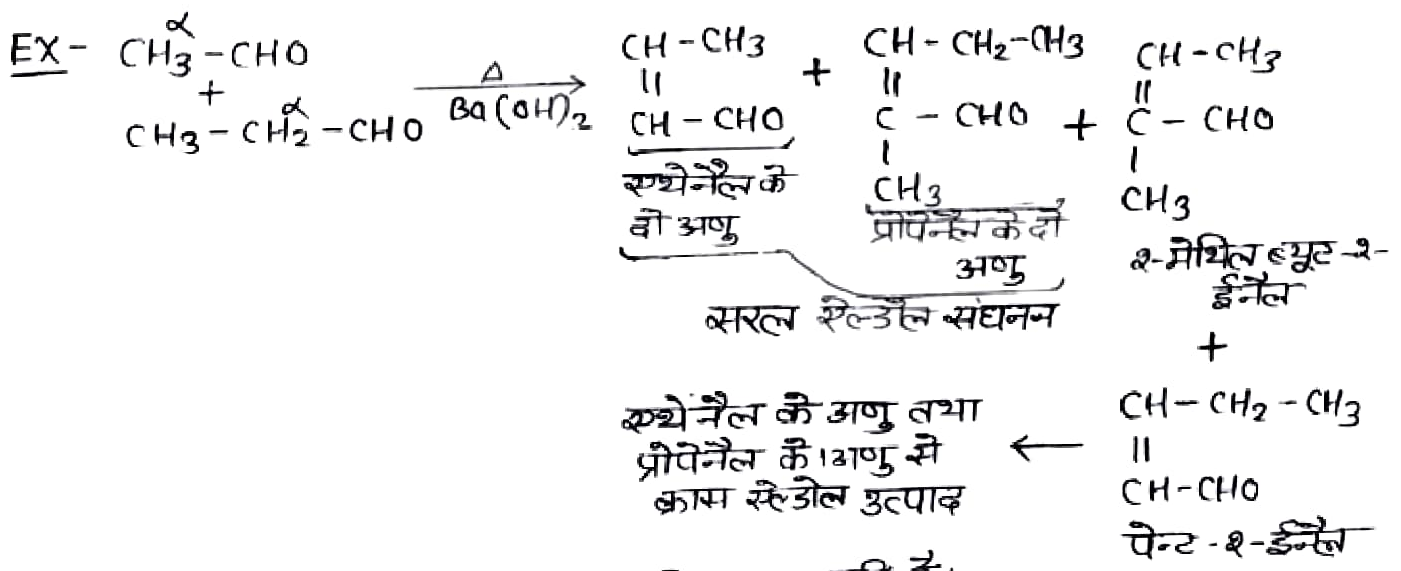 EX- CH3 (α) - CHO
+
CH3 - CH2 (α) - CHO
Δ
Ba(OH)2
CH - CH3
||
CH - CHO
एथेनैल के
दो अणु
+
CH - CH2-CH3
||
C - CHO
|
CH3
प्रोपेनैल के दो
अणु
सरल ऐल्डोल संघनन
+
CH - CH3
||
C - CHO
|
CH3
२-मेथिल ब्यूट-२-
ईनैल
+
CH- CH2 - CH3
||
CH-CHO
पेन्ट-२-ईनैल
←
एथेनैल के अणु तथा
प्रोपेनैल के 1अणु से
क्रास ऐल्डोल उत्पाद